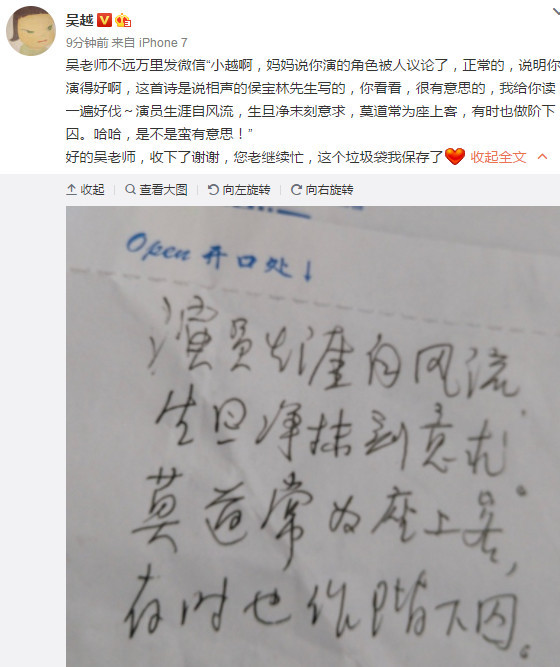 吴越
9分钟前 来自 iPhone 7
吴老师不远万里发微信“小越啊，妈妈说你演的角色被人议论了，正常的，说明你
演得好啊，这首诗是说相声的侯宝林先生写的，你看看，很有意思的，我给你读
一遍好伐～演员生涯自风流，生旦净末刻意求，莫道常为座上客，有时也做阶下
囚。哈哈，是不是蛮有意思！”
好的吴老师，收下了谢谢，您老继续忙，这个垃圾袋我保存了❤️ 收起全文
收起 查看大图 向左旋转 向右旋转
Open 开口处↓
演员生涯自风流，
生旦净抹刻意求。
莫道常为座上客，
有时也作阶下囚。